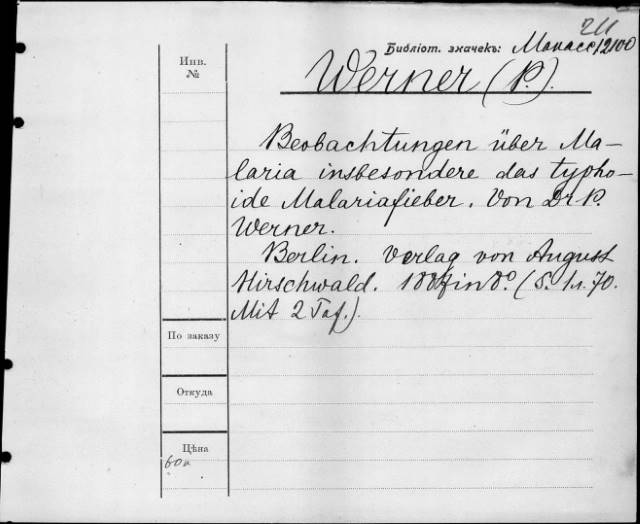 211
Библіот. значекъ: Манасс 12100
Инв.
№
Werner (P.).
Beobachtungen über Ma-
laria insbesondere das typho-
ide Malariafieber. Von Dr P.
Werner.
Berlin. Verlag von August
Hirschwald. in 8º. (S. 1 л. 70.
Mit 2 Taf.).
По заказу
Откуда
Цѣна
60к